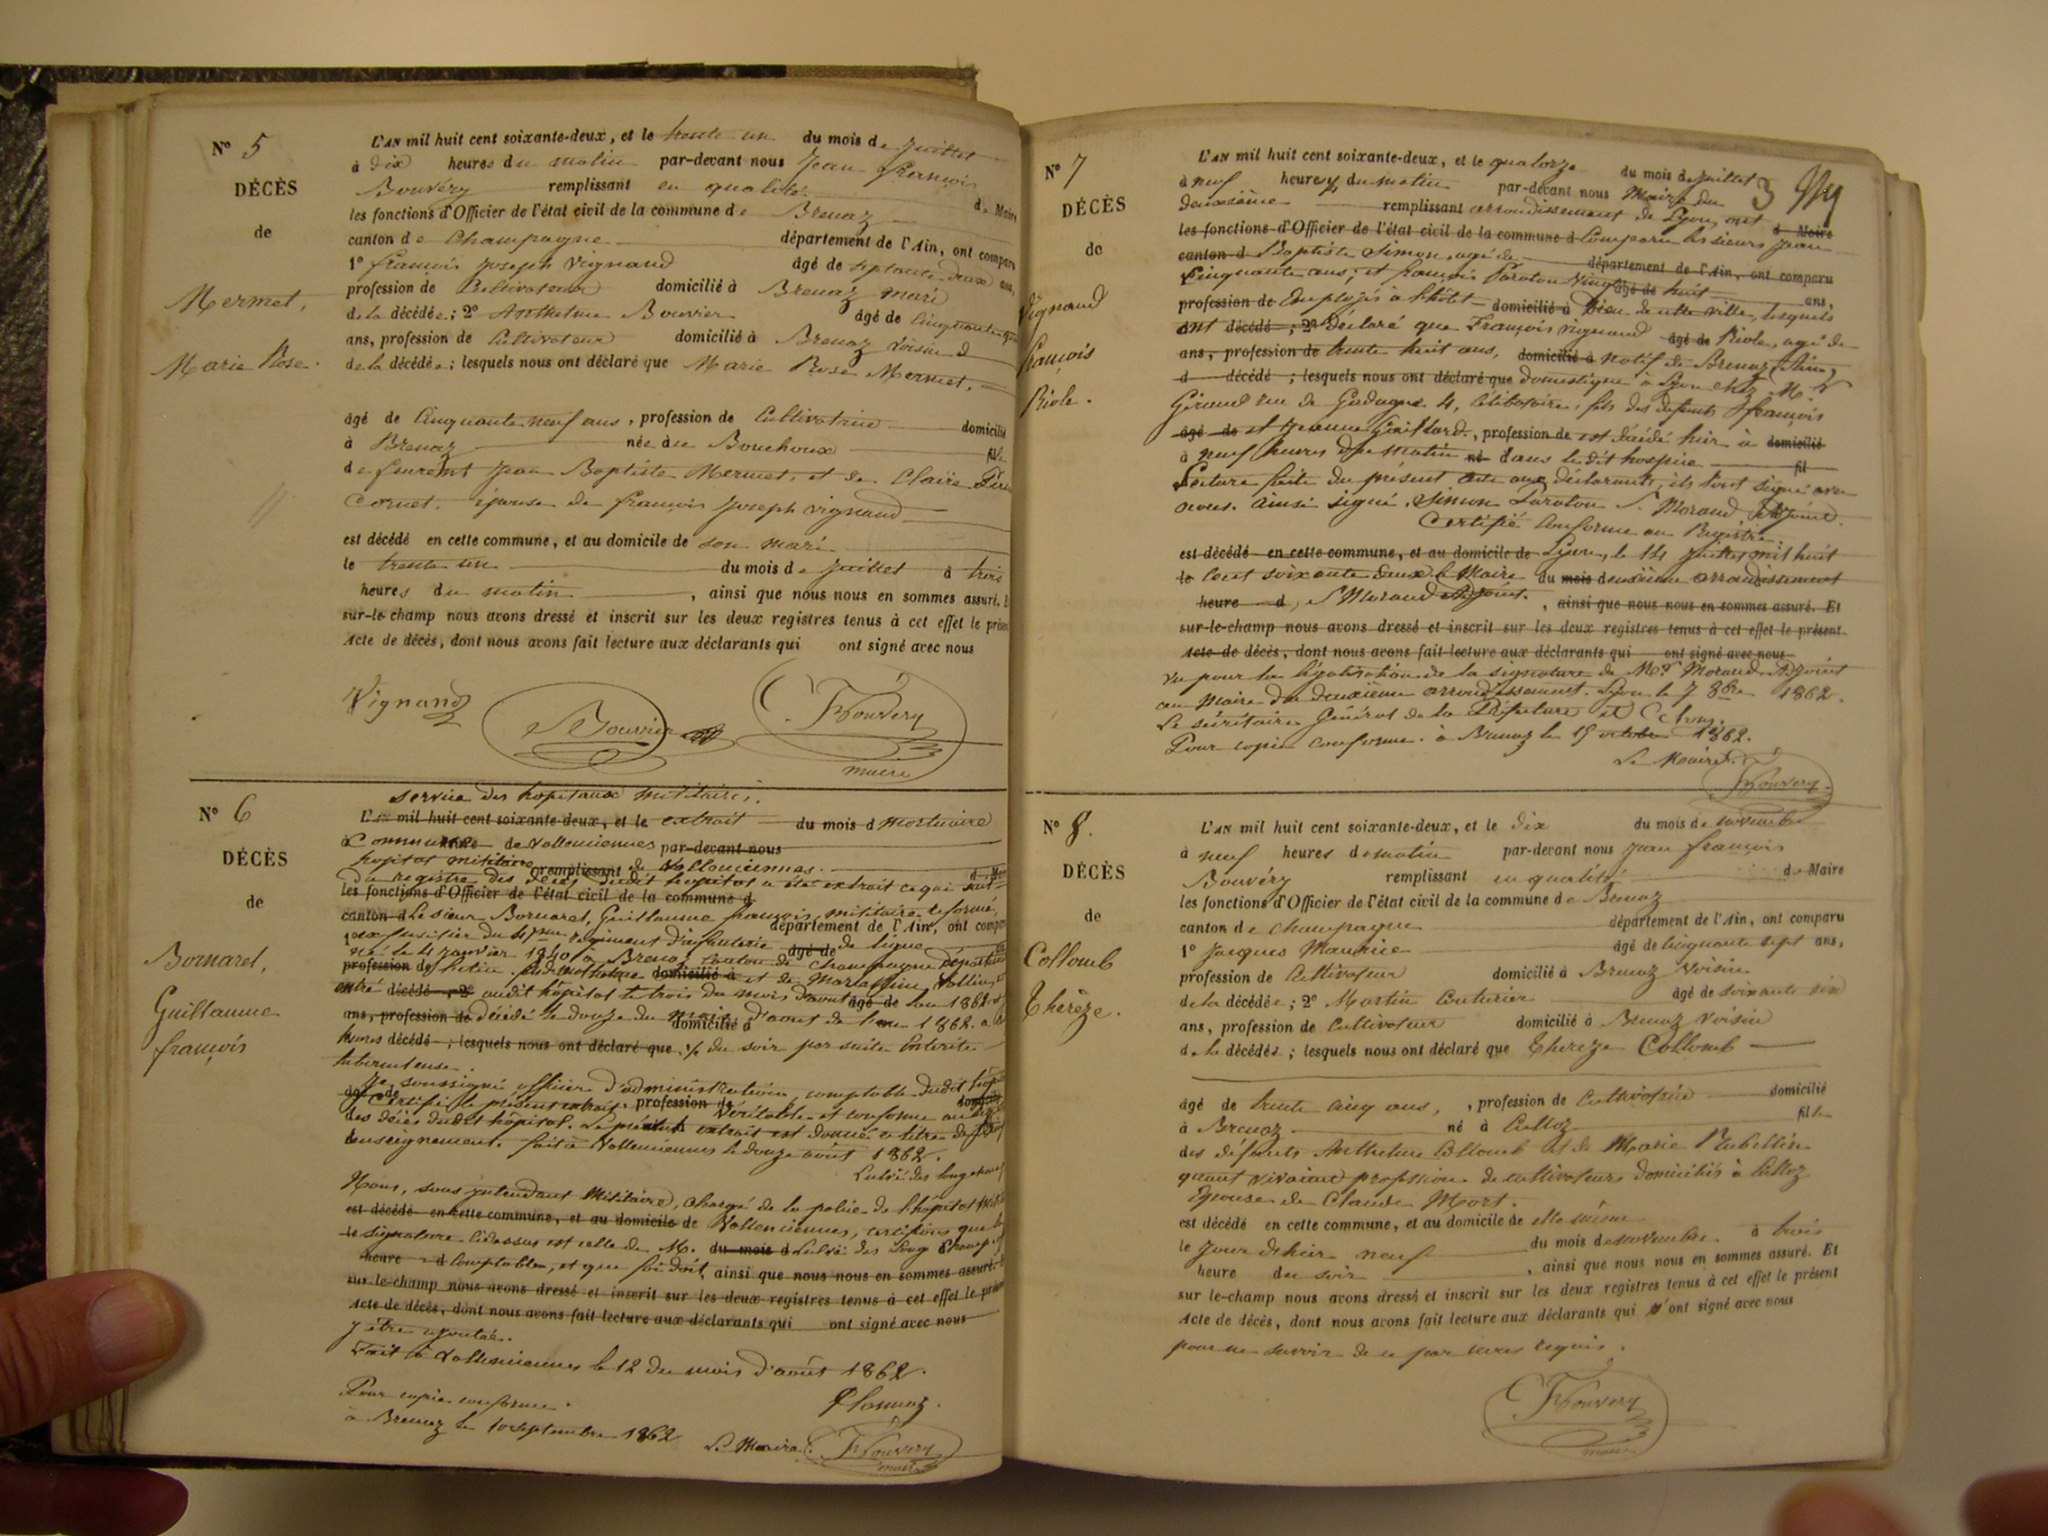 N° 5
DÉCÈS
de
Mermet,
Marie Rose.
L'AN mil huit cent soixante-deux, et le trente un du mois de Juillet
à dix heures du matin par-devant nous Jean François
Bouvéry remplissant en qualité de Maire
les fonctions d'Officier de l'état civil de la commune de Brenaz
canton de Champagne département de l'Ain, ont comparu
1° françois Joseph Vignand âgé de septante deux ans,
profession de Cultivateur domicilié à Brenaz mari
de la décédée; 2° Anthelme Bouvier âgé de cinquante
ans, profession de Cultivateur domicilié à Brenaz voisin d
de la décédée; lesquels nous ont déclaré que Marie Rose Mermet,
âgé de Cinquante neuf ans, profession de Cultivatrice domicilié
à Brenaz née à Bouchoux fille
de Jean Baptiste Mermet, et de Claire
Cornet, épouse de françois Joseph Vignand
est décédé en cette commune, et au domicile de son mari
le trente un du mois de Juillet à trois
heures du matin, ainsi que nous nous en sommes assuré. Et
sur-le-champ nous avons dressé et inscrit sur les deux registres tenus à cet effet le présent
Acte de décès, dont nous avons fait lecture aux déclarants qui ont signé avec nous
Vignand Bouvier Bouvery
maire
N° 6
DÉCÈS
de
Bornaret,
Guillaume
françois
Service des hopitaux militaires.
L'AN mil huit cent soixante-deux, et le extrait du mois d mortuaire
à Commune de Vallenciennes par-devant nous
hopital militaire remplissant de Vallenciennes. d Maire
Du registre des décès dudit hôpital a été extrait ce qui suit
les fonctions d'Officier de l'état civil de la commune d
canton d Le sieur Bornaret, Guillaume françois, militaire réformé,
département de l'Ain, ont comparu
1° ex fusilier du régiment d'infanterie âgé de de ligne
né le 4 janvier 1840 à Brenaz canton de Champagne département
profession de domicilié à et de
entré décédé ; 2° audit hôpital le trois du mois d'août âgé de l'an 1862
ans, profession de décédé le douze du mois d'août de l'an 1862 a
domicilié à
heures décédé ; lesquels nous ont déclaré que du soir par suite Entérite
tuberculeuse.
Je soussigné officier d'administration, comptable dudit hôpital
âgé de Certifie le présent extrait profession de véritable et conforme au domicilié
des décès dudit hôpital. Le présent extrait est donné à titre de
renseignement. fait à Vallenciennes le douze août 1862.
Nous, sous intendant Militaire, chargé de la police de l'hôpital
est décédé en cette commune, et au domicile de Vallenciennes, certifions que la
le signature ci dessus est celle de M. du mois d
heure d Comptable, et que foi doit, ainsi que nous nous en sommes assuré.
sur-le-champ nous avons dressé et inscrit sur les deux registres tenus à cet effet le présent
Acte de décès, dont nous avons fait lecture aux déclarants qui ont signé avec nous
y être ajoutée.
Fait à Vallenciennes le 12 du mois d'août 1862.
Pour copie conforme.
à Brenaz le 10 septembre 1862 Le Maire Bouvery
maire
3
N° 7
DÉCÈS
de
Vignand
françois
Riole.
L'AN mil huit cent soixante-deux, et le quatorze du mois de Juillet
à neuf heures du matin par-devant nous Maire du
deuxième remplissant arrondissement de Lyon, ont d Maire
les fonctions d'Officier de l'état civil de la commune d Comparu les sieurs Jean
canton d Baptiste Simon, agé de département de l'Ain, ont comparu
Cinquante ans, et françois Paraton Vingt âgé de huit ans,
profession de Employés à l'hôtel domicilié à Dieu de cette ville, lesquels
ont décédé ; 2° déclaré que François Vignand âgé de Riole, agé de
ans, profession de trente huit ans, domicilié à natif de Brenaz (Ain)
d décédé ; lesquels nous ont déclaré que domestique à Lyon chez Mr
Giraud rue de Gadagne 4, célibataire, fils des défunts françois
âgé de et Jeanne Guillard, profession de est décédé hier à domicilié
à neuf heures du matin né dans le dit hospice fil
Lecture faite du présent acte aux déclarants, ils l'ont signé avec
nous. ainsi signé, Simon Paraton S. Morand Adjoint.
Certifié Conforme au Registre.
est décédé en cette commune, et au domicile de Lyon, le 14 Juillet mil huit
le cent soixante deux le Maire du mois deuxième arrondissement
heure d, S Morand Adjoint., ainsi que nous nous en sommes assuré. Et
sur-le-champ nous avons dressé et inscrit sur les deux registres tenus à cet effet le présent
Acte de décès, dont nous avons fait lecture aux déclarants qui ont signé avec nous
Vu pour la légalisation de la signature de Mr Morand Adjoint
au Maire du deuxième arrondissement. Lyon le 7 8bre 1862.
Le sécrétaire Général de la Préfecture
Pour copie conforme. à Brenaz le 15 octobre 1862.
Le Maire
Bouvery
N° 8.
DÉCÈS
de
Collomb
Thérèze.
L'AN mil huit cent soixante-deux, et le dix du mois de novembre
à neuf heures d matin par-devant nous Jean françois
Bouvéry remplissant en qualité de Maire
les fonctions d'Officier de l'état civil de la commune de Brenaz
canton de Champagne département de l'Ain, ont comparu
1° Jacques Maurice âgé de cinquante sept ans,
profession de Cultivateur domicilié à Brenaz Voisin
de la décédée; 2° Martin Couturier âgé de soixante six
ans, profession de Cultivateur domicilié à Brenaz Voisin
de la décédée; lesquels nous ont déclaré que Thereze Collomb
âgé de trente cinq ans, profession de Cultivatrice domicilié
à Brenaz né à Culloz fille
des défunts Anthelme Collomb et de Marie Rubellin
quant vivaient profession de cultivateurs domiciliés à Culloz
Epouse de Claude Mort.
est décédé en cette commune, et au domicile de elle même
le Jour d'hier neuf du mois de novembre à trois
heure du soir, ainsi que nous nous en sommes assuré. Et
sur le-champ nous avons dressé et inscrit sur les deux registres tenus à cet effet le présent
Acte de décès, dont nous avons fait lecture aux déclarants qui n'ont signé avec nous
pour ne savoir de ce par nous requis.
Bouvery
maire